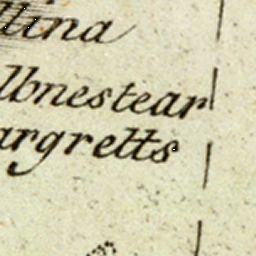 llina
lbnestear
argretts